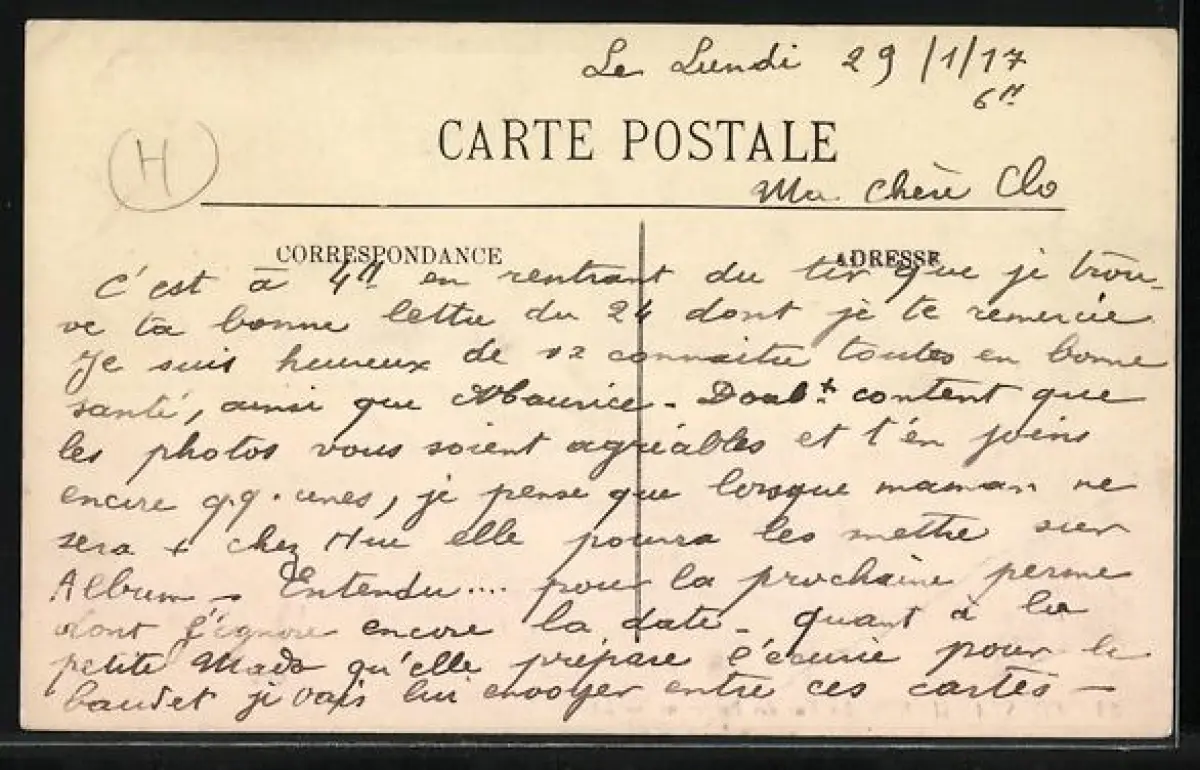 Le Lundi 29/1/17
6H
CARTE POSTALE
H
Ma chère Clo
CORRESPONDANCE
ADRESSE
C'est à 4H en rentrant du tir que je trou-
ve ta bonne lettre du 24 dont je te remercie
Je suis heureux de connaitre toutes en bonne
santé, ainsi que Maurice - content que
les photos vous soient agréables et t'en joins
encore q.q. unes, je pense que lorsque maman ne
sera + chez Hue elle pourra les mettre sur
Album - Entendu.... pour la prochaine perme
dont j'ignore encore la date - quant à la
petite Mado qu'elle prépare l'écurie pour le
baudet je vais lui envoyer entre ces cartes -